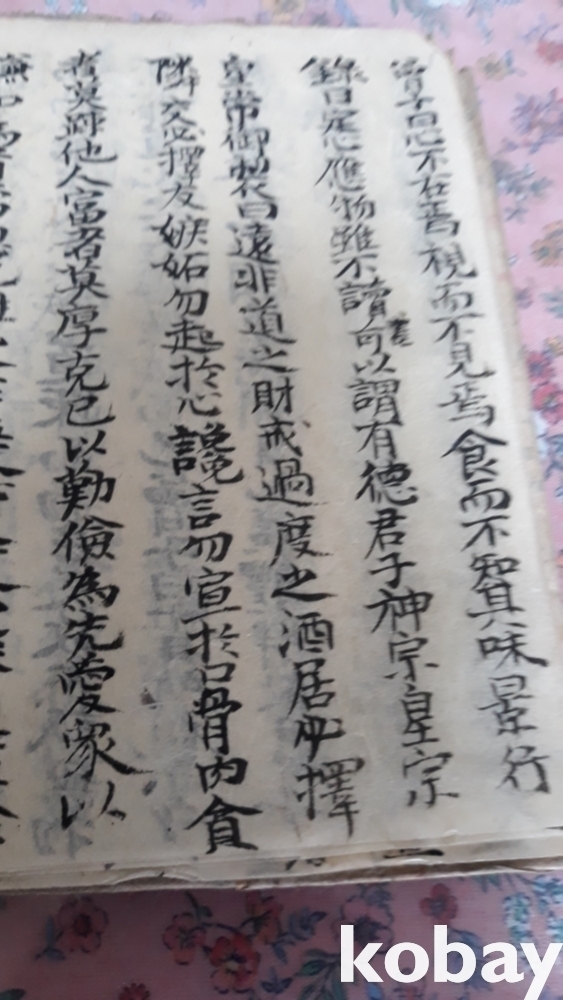 曾子曰心不在焉視而不見焉食而不知其味景行
錄曰定心應物雖不讀書可以謂有德君子神宗皇宗
皇帝御製曰遠非道之財戒過度之酒居必擇
隣交必擇友嫉妬勿起於心讒言勿宣於口骨肉貪
者莫疎他人富者莫厚克己以勤儉為先愛眾以
kobay